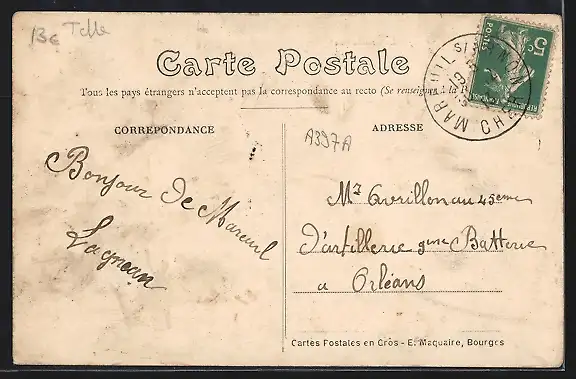 13e Telle
Carte Postale
Tous les pays étrangers n'acceptent pas la correspondance au recto (Se renseigner à la P
CORREPONDANCE
ADRESSE
A397A
Bonjour de Mareuil
Lagneau
Mr Avrillon au 45eme
d'artillerie 9me Batterie
a Orléans
Cartes Postales en Gros - E. Maquaire, Bourges
MAREUIL S
CHER
POSTES
5c